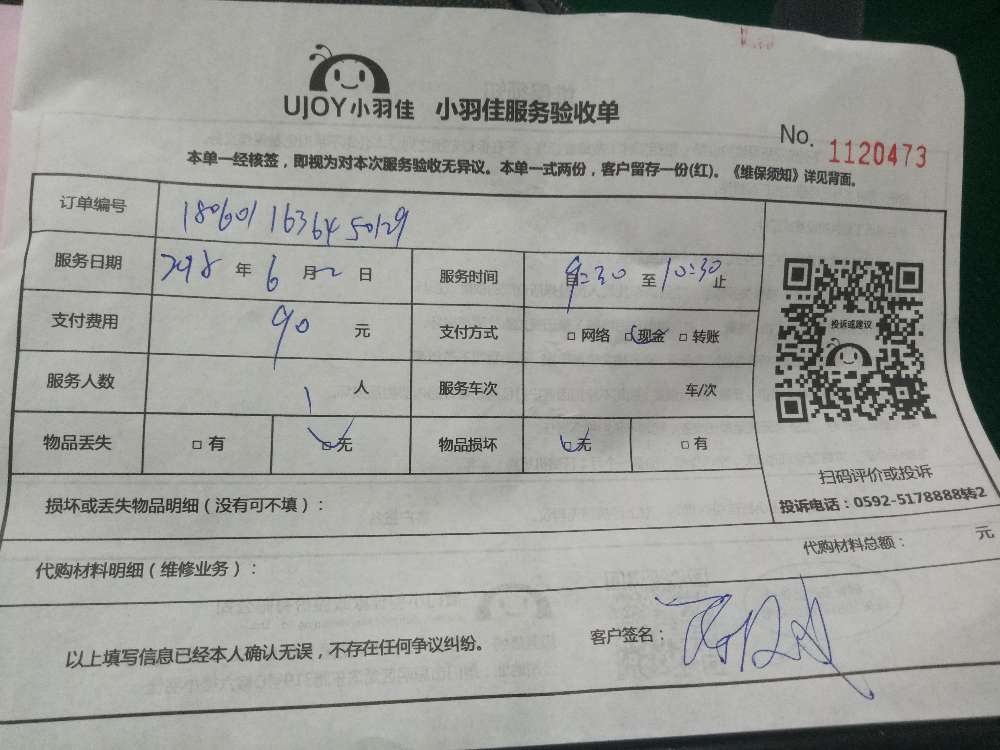 UJOY小羽佳 小羽佳服务验收单
No. 1120473
本单一经核签，即视为对本次服务验收无异议。本单一式两份，客户留存一份(红)。《维保须知》详见背面。
订单编号 180601 163645 0129
服务日期 2018 年 6 月 2 日 服务时间 自 9:30 至 10:30 止
支付费用 90 元 支付方式 □ 网络 □ 现金 □ 转账
服务人数 1 人 服务车次 车/次
物品丢失 □ 有 □ 无 物品损坏 □ 无 □ 有
投诉或建议
扫码评价或投诉
投诉电话：0592-5178888转2
损坏或丢失物品明细（没有可不填）：
代购材料明细（维修业务）： 代购材料总额： 元
以上填写信息已经本人确认无误，不存在任何争议纠纷。 客户签名：